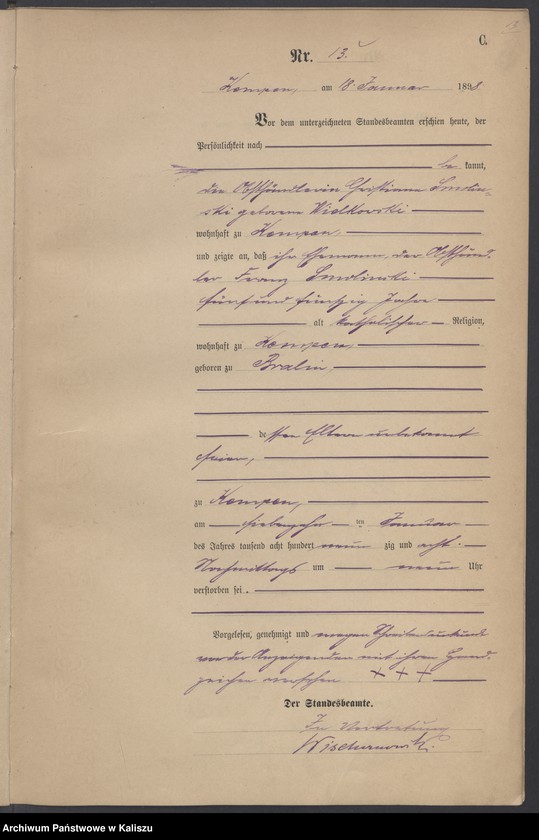 13
C.
Nr. 13.
Kempen, am 18. Januar 1898
Vor dem unterzeichneten Standesbeamten erschien heute, der
Persönlichkeit nach
be kannt,
die Obsthändlerin Christiane Smolin-
ski geborene Wielkovski
wohnhaft zu Kempen
und zeigte an, daß ihr Ehemann, der Obsthänd-
ler Franz Smolinski
fünf und fünfzig Jahre
alt katholischer Religion,
wohnhaft zu Kempen,
geboren zu Bralin
dessen Eltern unbekannt
seien,
zu Kempen,
am siebenzehn ten Januar
des Jahres tausend acht hundert neun zig und acht
Nachmittags um neun Uhr
verstorben sei.
Vorgelesen, genehmigt und wegen Schreibensunkunde
von der Anzeigenden mit ihren Hand-
zeichen versehen + + +
Der Standesbeamte.
In Vertretung
Archiwum Państwowe w Kaliszu